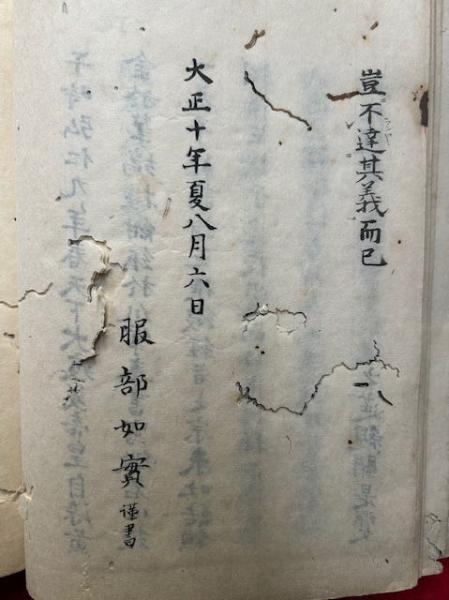 豈不達其義而已
大正十年夏八月六日
服部如實 謹書